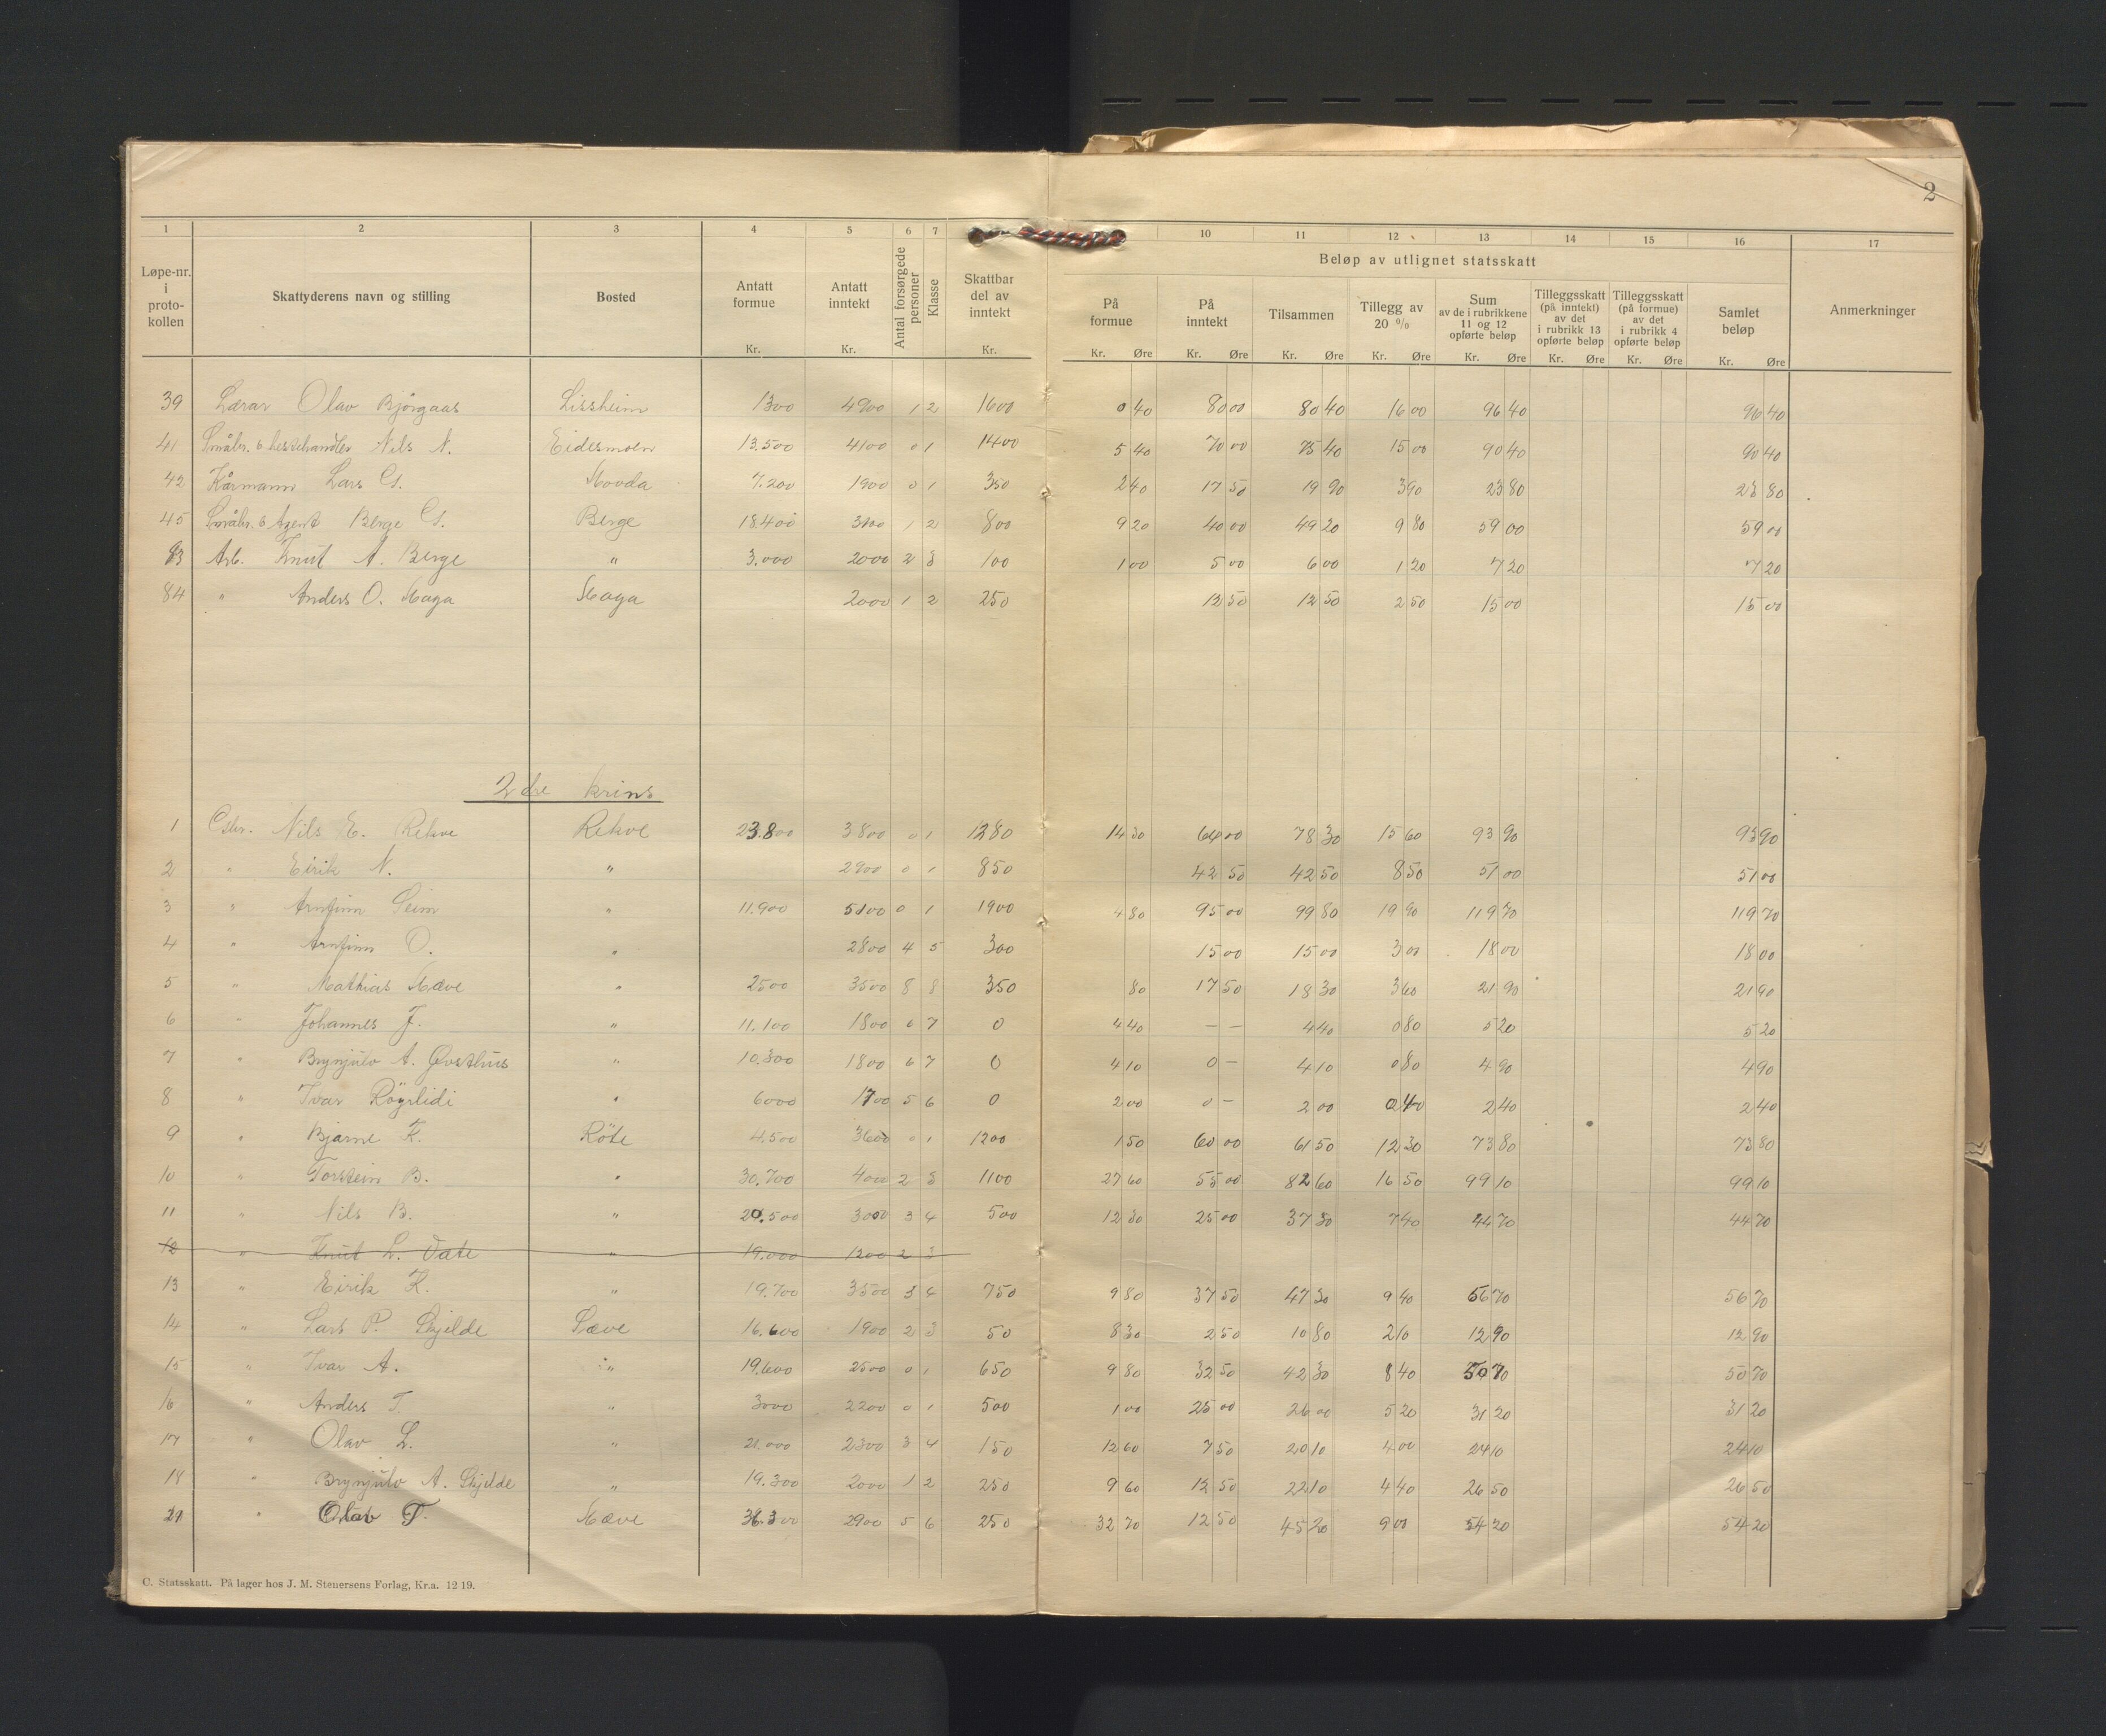 2
1 2 3 4 5 6 7 10 11 12 13 14 15 16 17
Beløp av utlignet statsskatt
Løpe-nr. i proto-kollen Skattyderens navn og stilling Bosted Antatt formue Kr. Antatt inntekt Kr. Antal forsørgede personer Klasse Skattbar del av inntekt Kr. På formue Kr. Øre På inntekt Kr. Øre Tilsammen Kr. Øre Tillegg av 20 % Kr. Øre Sum av de i rubrikkene 11 og 12 opførte beløp Kr. Øre Tilleggsskatt (på inntekt) av det i rubrikk 13 opførte beløp Kr. Øre Tilleggsskatt (på formue) av det i rubrikk 4 opførte beløp Kr. Øre Samlet beløp Kr. Øre Anmerkninger
39 Lærar Olav Bjørgaas Lissheim 1300 4900 1 2 1600 0 40 80 00 80 40 16 00 96 40 96 40
41 Småbr. & hestehandler Nils N. Eidesmoen 13.500 4100 0 1 1400 5 40 70 00 75 40 15 00 90 40 90 40
42 Kårmann Lars Hovda 7.200 1900 0 1 350 2 40 17 50 19 90 3 90 23 80 23 80
45 Småbr. & Agent Berge Berge 18.400 3100 1 2 800 9 20 40 00 49 20 9 80 59 00 59 00
83 Arb. Knut A. Berge " 3.000 2000 2 3 100 1 00 5 00 6 00 1 20 7 20 7 20
84 " Anders O. Haga Haga 2000 1 2 250 12 50 12 50 2 50 15 00 15 00
2dre krins
1 Gbr. Nils E. Rekve Rekve 23.800 3800 0 1 1280 14 30 64 00 78 30 15 60 93 90 93 90
2 " Eirik N. " 2900 0 1 850 42 50 42 50 8 50 51 00 51 00
3 " Arnfinn Seim " 11.900 5100 0 1 1900 4 80 95 00 99 80 19 90 119 70 119 70
4 " Arnfinn O. " 2800 4 5 300 15 00 15 00 3 00 18 00 18 00
5 " Mathias Hæve " 2500 3500 8 8 350 80 17 50 18 30 3 60 21 90 21 90
6 " Johannes J. " 11.100 1800 6 7 0 4 40 — — 4 40 0 80 5 20 5 20
7 " Brynjulv A. Øvsthus " 10.300 1800 6 7 0 4 10 0 — 4 10 0 80 4 90 4 90
8 " Ivar Röyrlidi " 6000 1700 5 6 0 2 00 0 — 2 00 0 40 2 40 2 40
9 " Bjarne K. Röte 4.500 3600 0 1 1200 1 50 60 00 61 50 12 30 73 80 73 80
10 " Torstein B. " 30.700 4000 2 3 1100 27 60 55 00 82 60 16 50 99 10 99 10
11 " Nils B. " 20.500 3000 3 4 500 12 30 25 00 37 30 7 40 44 70 44 70
12 " Knut L. Væte " 19.000 1200 2 3
13 " Eirik K. " 19.700 3500 3 4 750 9 80 37 50 47 30 9 40 56 70 56 70
14 " Lars P. Skjelde Sæve 16.600 1900 2 3 50 8 30 2 50 10 80 2 10 12 90 12 90
15 " Ivar A. " 19.600 2500 0 1 650 9 80 32 50 42 30 8 40 50 70 50 70
16 " Anders T. " 3000 2200 0 1 500 1 00 25 00 26 00 5 20 31 20 31 20
17 " Olav L. " 21.000 2300 3 4 150 12 60 7 50 20 10 4 00 24 10 24 10
18 " Brynjulv A. Skjelde " 19.300 2000 1 2 250 9 60 12 50 22 10 4 40 26 50 26 50
21 " Olav T. Hæve 36.300 2900 5 6 250 32 70 12 50 45 20 9 00 54 20 54 20
C. Statsskatt. På lager hos J. M. Stenersens Forlag, Kr.a. 12 19.